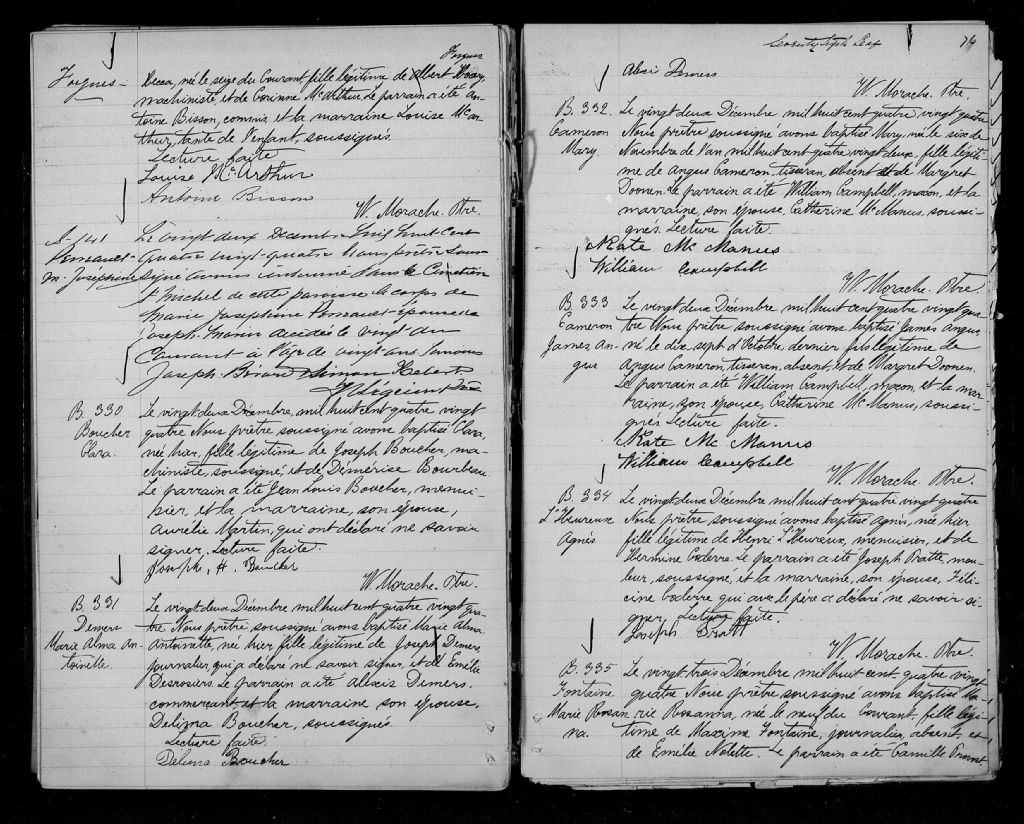 Forgues
Forgues -
Recca, né le seize du Courant, fille légitime de Albert Henry,
machiniste, et de Corinne McArthur. Le parrain a été An-
toine Bisson, commis et la marraine Louise McAr-
thur, tante de l'enfant, soussignés.
Lecture faite
Louise McArthur
Antoine Bisson
W. Morache. Ptre.
S-141
M. Joséphine
Le vingt deux Décembre Mil huit cent
quatre vingt-quatre Nous prêtre Sous-
signé avons inhumé dans le Cimetière
St Michel de cette paroisse le corps de
Marie Joséphine épouse de
Joseph Morin décédée le vingt du
Courant à l'âge de vingt ans. Témoins
Joseph Bérard Simon Hebert
B. 330
Boucher
Clara.
Le vingt deux Décembre, mil huit cent quatre vingt
quatre Nous prêtre soussigné avons baptisé Clara,
née hier, fille légitime de Joseph Boucher, ma-
chiniste, soussigné, et de Démerise Bourbeau.
Le parrain a été Jean Louis Boucher, menui-
sier et la marraine, son épouse,
Aurélie Martin, qui ont déclaré ne savoir
signer. Lecture faite.
Joseph, H. Boucher
W. Morache. Ptre.
B. 331
Demers
Marie Alma An-
toinette.
Le vingt deux Décembre mil huit cent quatre vingt qua-
tre Nous prêtre soussigné avons baptisé Marie Alma
Antoinette, née hier, fille légitime de Joseph Demers,
journalier, qui a déclaré ne savoir signer, et de Emélie
Desrosiers. Le parrain a été Alexis Demers,
commerçant, et la marraine son épouse,
Delima Boucher, soussignés
Lecture faite.
Delima Boucher
Seventy sixth Leaf
76
Alexi Demers
W. Morache. Ptre.
B. 332.
Cameron
Mary.
Le vingt deux Décembre mil huit cent quatre vingt quatre
Nous prêtre soussigné avons baptisé Mary, né le six de
Novembre de l'an, mil huit cent quatre vingt deux, fille légiti-
me de Angus Cameron, tisseran, absent et de Margret
Doonen. Le parrain a été William Campbell, maçon, et la
marraine, son épouse, Catherine McManus, soussi-
gnés. Lecture faite.
Kate Mc Manus
William Campbell
W. Morache. Ptre.
B. 333
Cameron
James An-
gus
Le vingt deux Décembre mil huit cent quatre vingt qua-
tre Nous prêtre soussigné avons baptisé James Angus,
né le dix sept d'Octobre, dernier, fils légitime de
Angus Cameron, tisseran, absent, et de Margret Doonen.
Le parrain a été William Campbell, maçon, et la mar-
raine, son épouse, Catherine McManus, soussi-
gnés Lecture faite.
Kate Mc Manus
William Campbell
W. Morache. Ptre.
B. 334
L'Heureux
Agnès
Le vingt deux Décembre mil huit cent quatre vingt quatre
Nous prêtre soussigné avons baptisé Agnès, née hier
fille légitime de Henri L'Heureux, menuisier, et de
Hermine Coderre. Le parrain a été Joseph Pratte, mou-
leur, soussigné, et la marraine, son épouse, Féli-
cine Coderre qui avec le père a déclaré ne savoir si-
gner, Lecture faite.
Joseph Pratt
W. Morache. Ptre.
B. 335
Fontaine
Marie Rosan-
na.
Le vingt trois Décembre mil huit cent quatre vingt
quatre Nous prêtre soussigné avons baptisé Ma-
rie Rosanna, née le neuf du Courant, fille légi-
time de Maxime Fontaine, journalier, absent et
de Emélie Nolette. Le parrain a été Camille Provost.